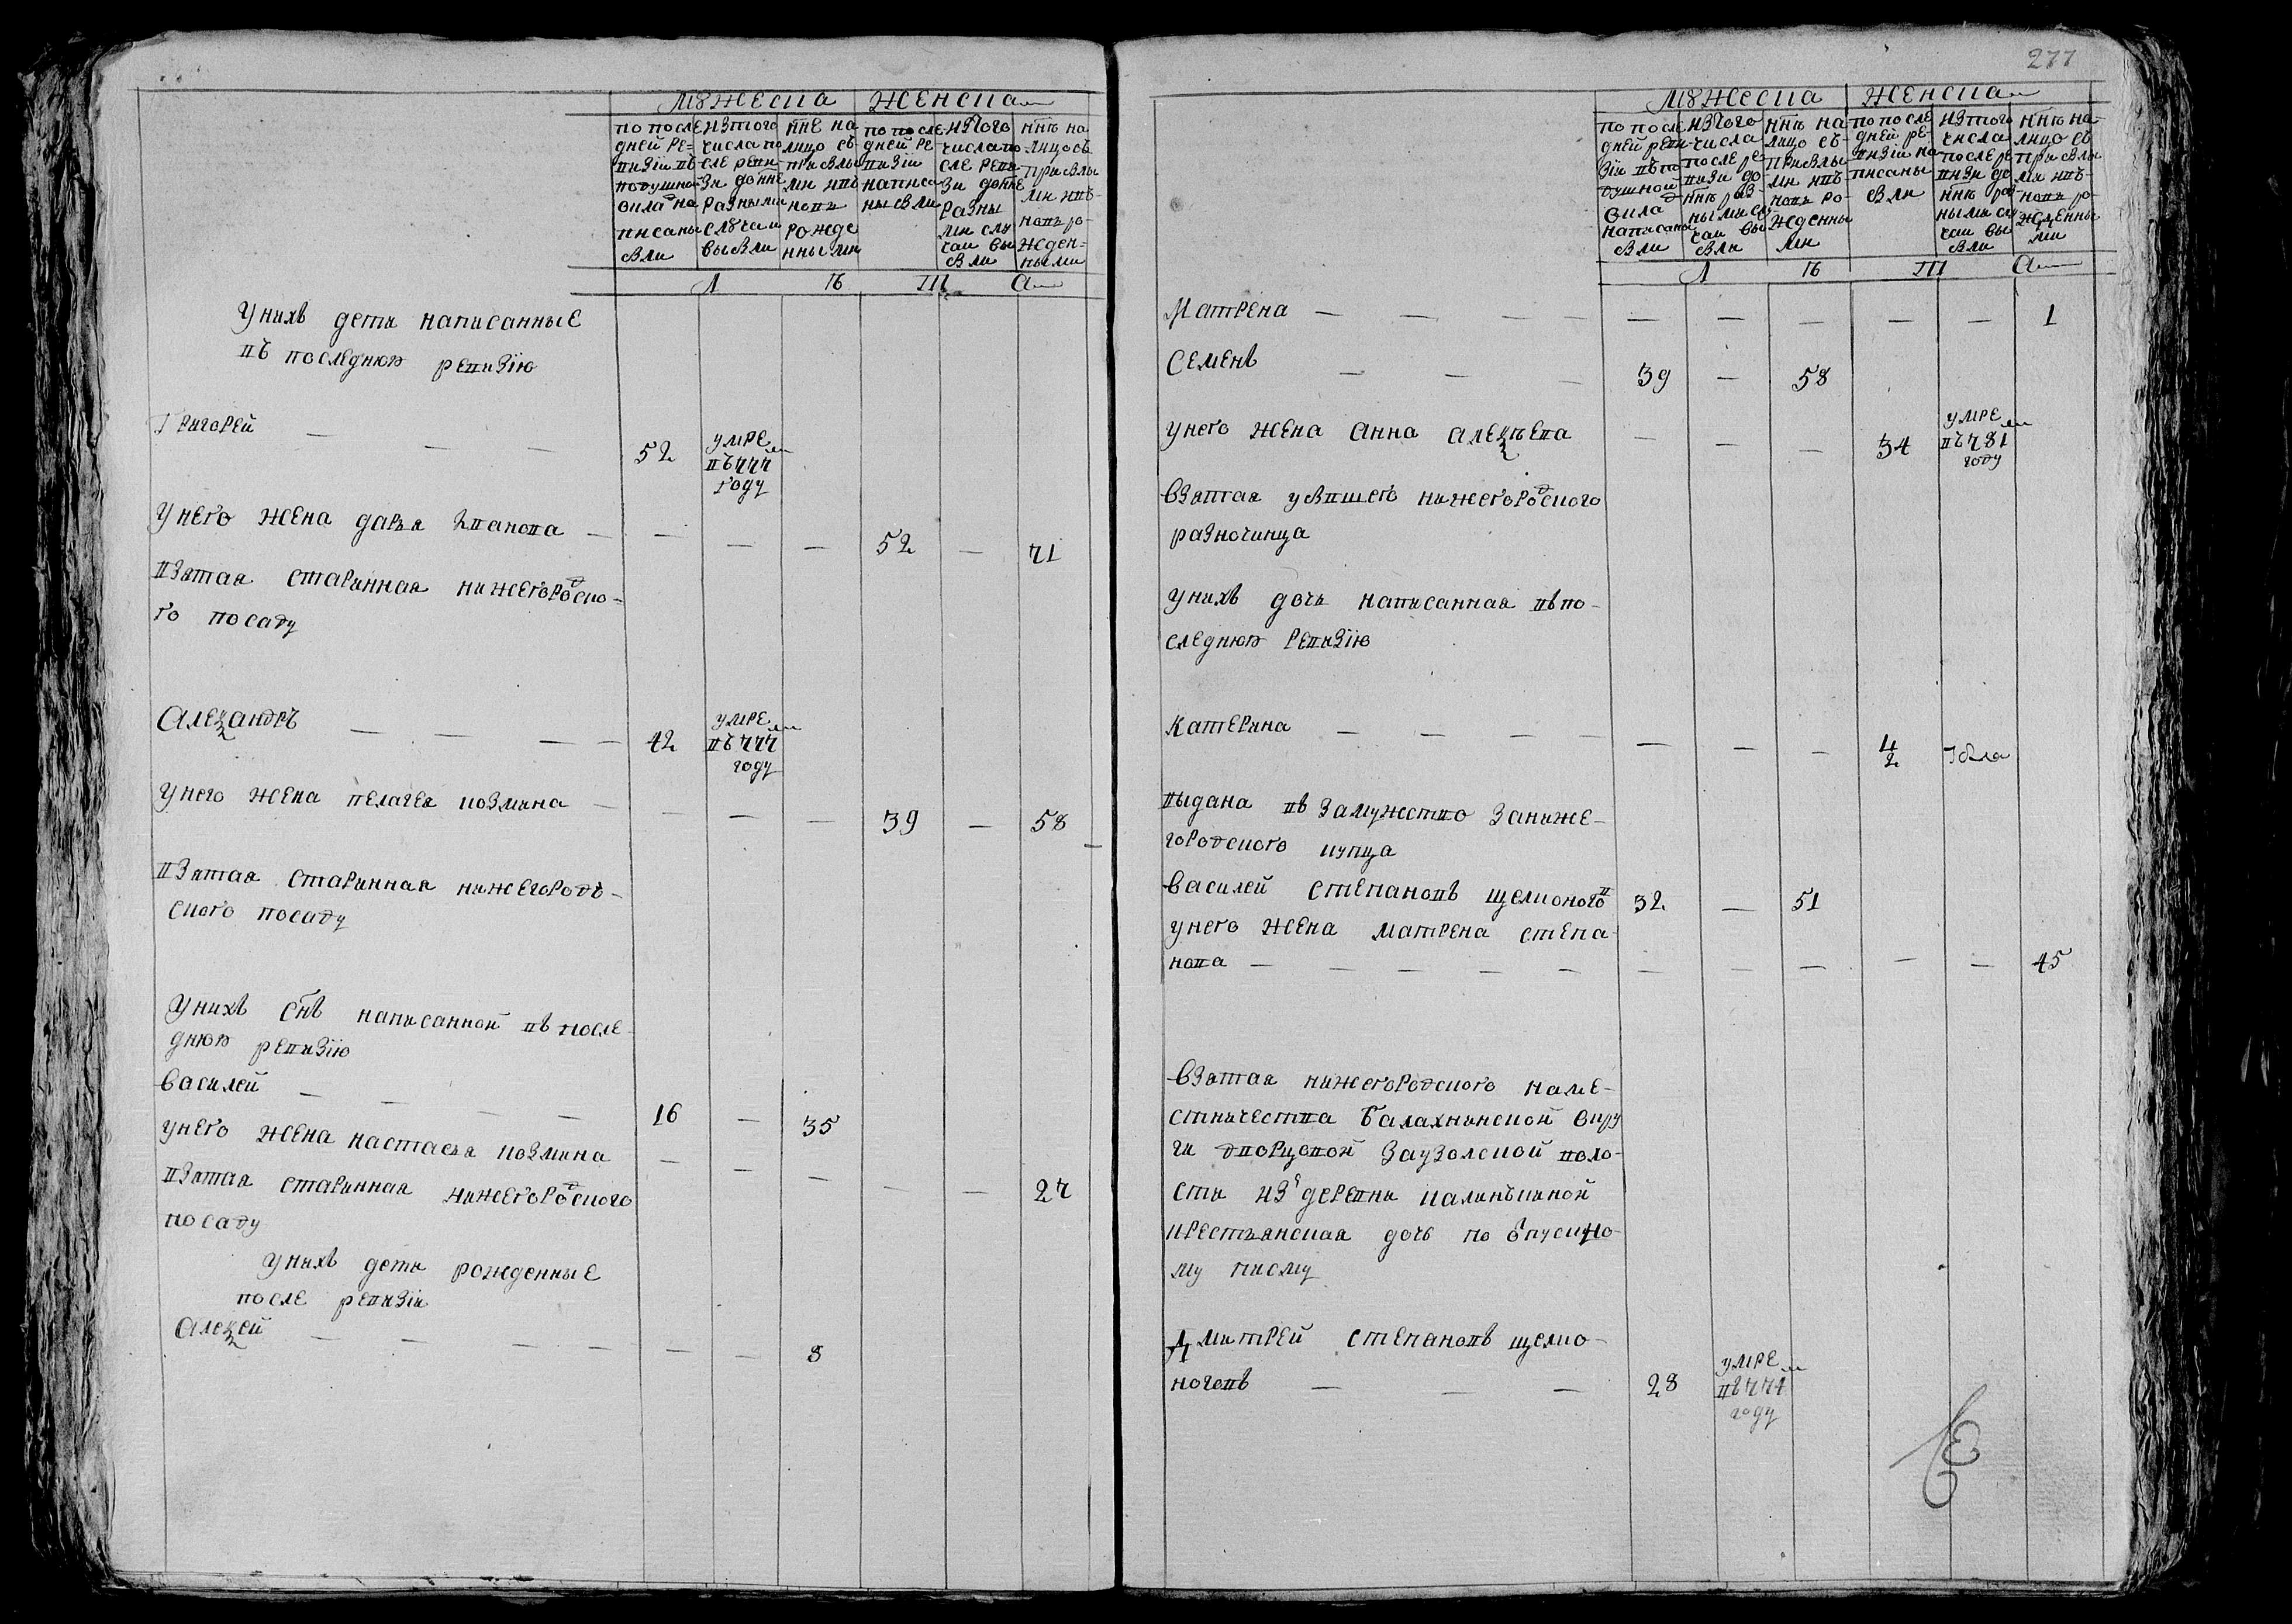 мꙋжеска женска
по после дней ре= визiи въ подушно окладъ написаны были
из того числа по сле реви зiи до нне разными случаи выбыли
нне на лицо съ прибылы ми и вновь рожде нными
по после дней ре визiи написа ны были
из того числа по сле реви зiи до нне разны ми слу чаи вы были
нне на лицо съ прибылы ми и вновь рожден= ными
л ѣ т а
У нихъ дети написанные
въ последнюю ревизiю
Григорей — — — 52 умре въ 777 году
У него жена дарья Иванова — — — — 52 — 71
Взятая старинная нижегородско-
го посаду
Александръ — — — — 42 умре въ 777 году
У него жена пелагея козмина — — — — 39 — 58
Взятая старинная нижегородъ-
ского посаду
У нихъ снъ написанной въ после-
днюю ревизiю
Василей — — — — 16 — 35
У него жена настасья козмина — — — — — 27
Взятая старинная нижегородского
посаду
У нихъ дети рожденные
после ревизiи
Алексей — — — — — — 8
277
мꙋжеска женска
по после дней реви зiи въ по душной окладъ написаны были
из того числа после ре визiи до нне раз ными слу чаи вы были
нне на лицо съ прибылы ми и вновь ро жденны ми
по после дней ре визiи на писаны были
из того числа после ре визiи до нне раз ными слу чаи вы были
нне на лицо съ прибылы ми и вновь ро жденны ми
л ѣ т а
Матрена — — — — — — — — — 1
Семенъ — — — 39 — 58
У него жена Анна алексеева — — — 34 умре въ 781 году
Взятая у бывшего нижегородского
разночинца
У нихъ дочь написанная въ по-
следнюю ревизiю
Катерина — — — — — — — 4/2
выдана въ замужество за ниже-
городского купца
Василей Степановъ щелконоговъ 32 — 51
У него жена матрена степа-
нова — — — — — — — — — — 45
Взятая нижегородского наме-
стничества балахнинской окру
ги дворцовой заузолской воло-
сти из деревни калинъкиной
крестьянская дочь по впускно-
му писму
Дмитрей степановъ щелко-
ноговъ — — — 28 умре въ 771 году